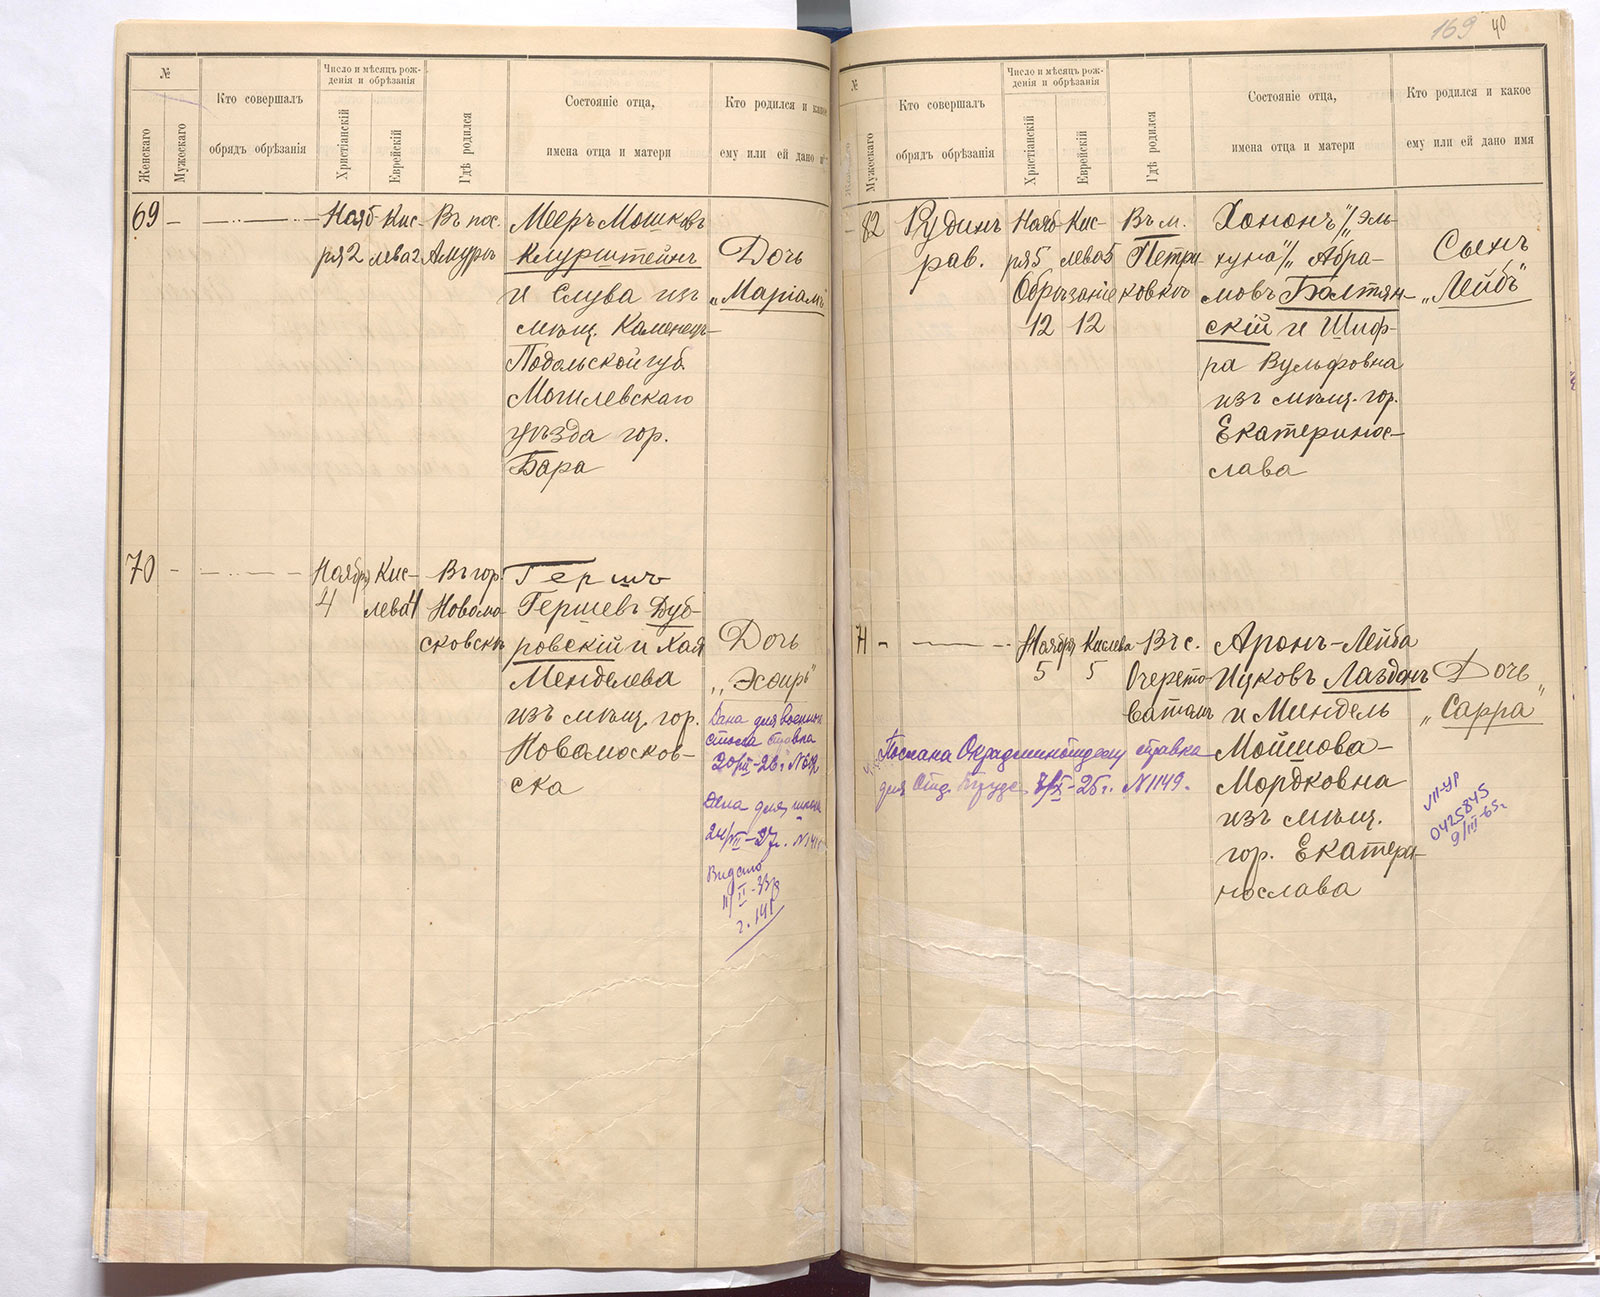 169 40
№
Женскаго
Мужескаго
Кто совершалъ
обрядъ обрѣзанія
Число и мѣсяцъ рож-
денія и обрѣзанія
Христіанскій
Еврейскій
Гдѣ родился
Состояніе отца,
имена отца и матери
Кто родился и какое
ему или ей дано и
69
Нояб-
ря 2
Кис-
лева 2
Въ пос.
Амуръ
Мееръ Мошковъ
Клурштейнъ
и Слува изъ
мѣщ. Каменецъ-
Подольской губ.
Могилевскаго
уѣзда гор.
Бара
Дочь
„Маріамъ"
70
Ноября
4
Кис-
лева 4
Въ гор.
Новомо-
сковскъ
Гершъ
Гершевъ Дуб-
ровскій и Хая
Менделева
изъ мѣщ. гор.
Новомосков-
ска
Дочь
„Эсфирь"
Дана для военного
стола справка
Дана для школы
Видано
№
Мужескаго
Кто совершалъ
обрядъ обрѣзанія
Число и мѣсяцъ рож-
денія и обрѣзанія
Христіанскій
Еврейскій
Гдѣ родился
Состояніе отца,
имена отца и матери
Кто родился и какое
ему или ей дано имя
82
Рудинъ
рав.
Нояб-
ря 5
Кис-
лева 5
Обрѣзаніе
12 12
Въ м.
Петри
ковкѣ
Хононъ /„Эль-
хуна"/ Абра-
мовъ Балтян-
скій и Шиф-
ра Вульфовна
изъ мѣщ. гор.
Екатеринос-
лава
Сынъ
„Лейбъ"
71
Ноября
5
Кислева
5
Въ с.
Очерето
ватомъ
Аронъ-Лейба
Ицковъ Лаздонъ
и Миндель
Мойшова-
Мордковна
изъ мѣщ.
гор. Екатери-
нослава
Дочь
„Сарра"
Послана справка
для №1149.
VII-УР
0425845
9/III-65г.